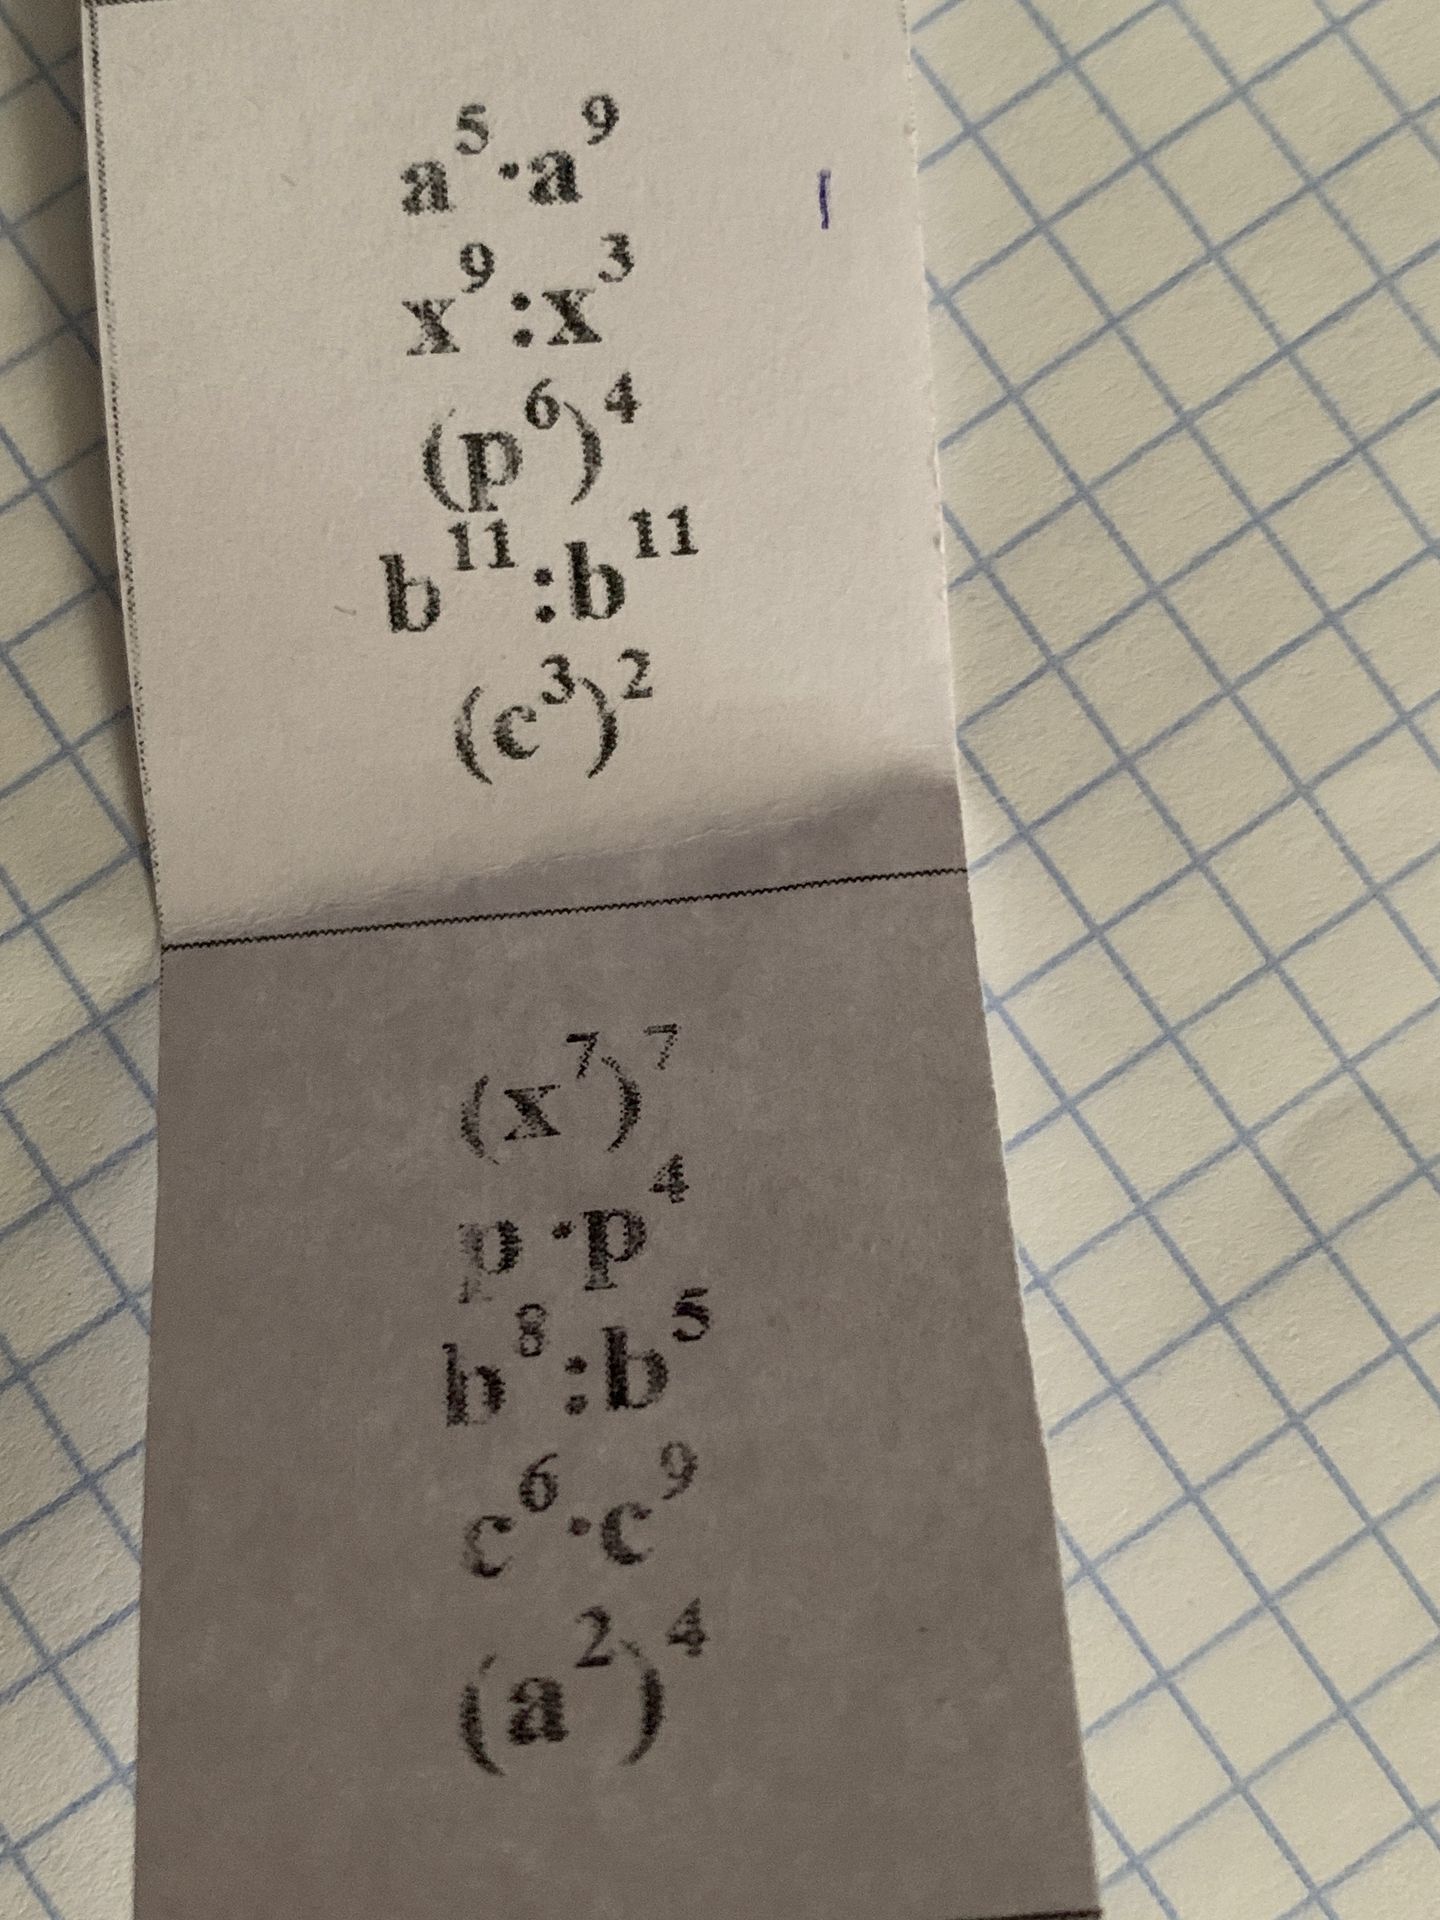 a⁵·a⁹
x⁹:x³
(p⁶)⁴
b¹¹:b¹¹
(c³)²
(x⁷)⁷
p·p⁴
b⁸:b⁵
c⁶·c⁹
(a²)⁴